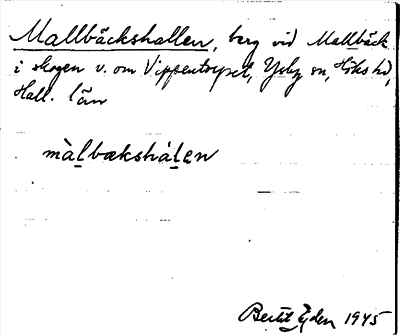 Mallbäckshallen, berg vid Mallbäck
i skogen v. om Vippentorpet, Ysby sn, Höks hd,
Hall. län
màlbækshálen
Bertil Ejder 1945